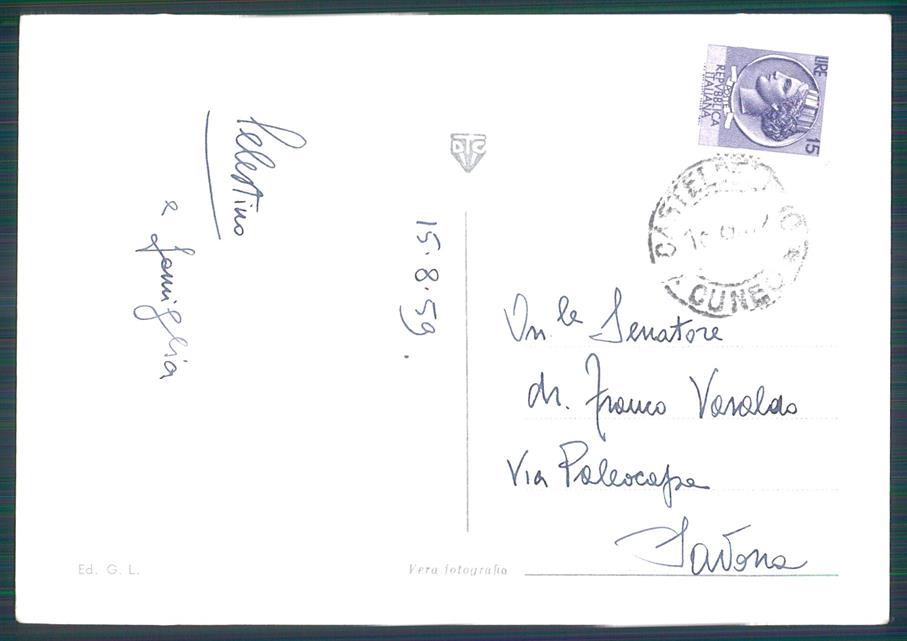 Celestino
& famiglia
15.8.59.
DTC
LIRE 15
POSTE
REPVBBLICA
ITALIANA
CUNEO
On.le Senatore
dr. Franco Varaldo
Via Paleocapa
Savona
Ed. G. L.
Vera fotografia